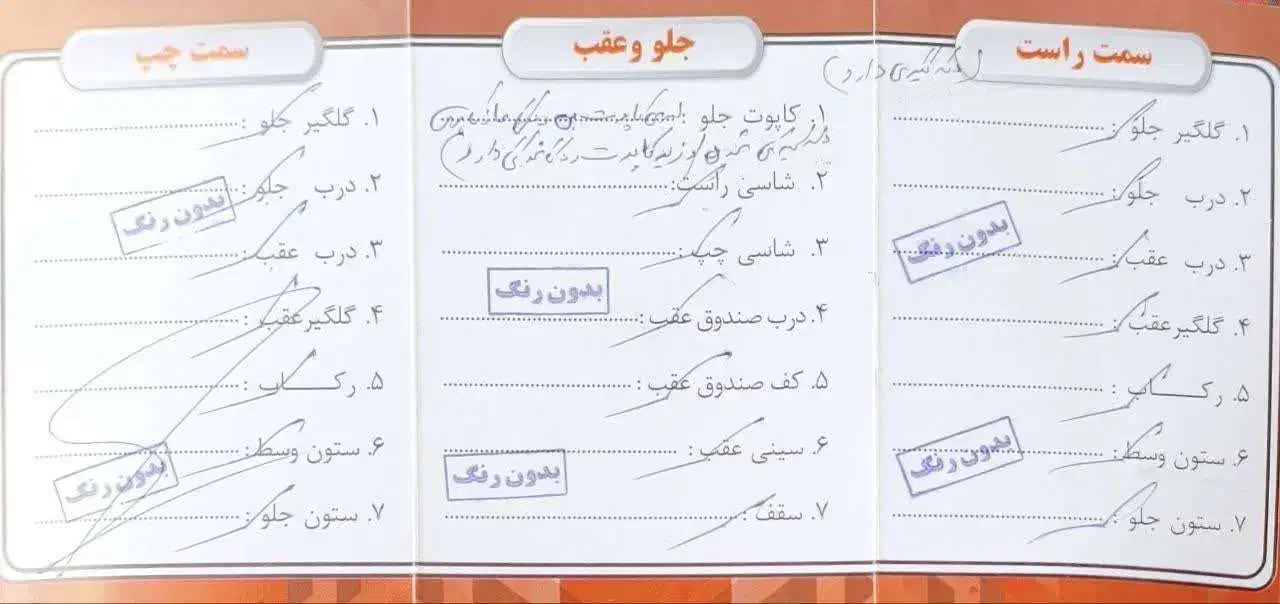 سمت راست
۱. گلگیر جلو :
۲. درب جلو :
بدون رنگ
۳. درب عقب :
۴. گلگیر عقب :
۵. رکاب :
۶. ستون وسط :
بدون رنگ
۷. ستون جلو :
جلو و عقب
(لکه گیری دارد)
۱. کاپوت جلو :
۲. شاسی راست :
۳. شاسی چپ :
بدون رنگ
۴. درب صندوق عقب :
۵. کف صندوق عقب :
۶. سینی عقب :
بدون رنگ
۷. سقف :
سمت چپ
۱. گلگیر جلو :
۲. درب جلو :
بدون رنگ
۳. درب عقب :
۴. گلگیر عقب :
۵. رکاب :
۶. ستون وسط :
بدون رنگ
۷. ستون جلو :